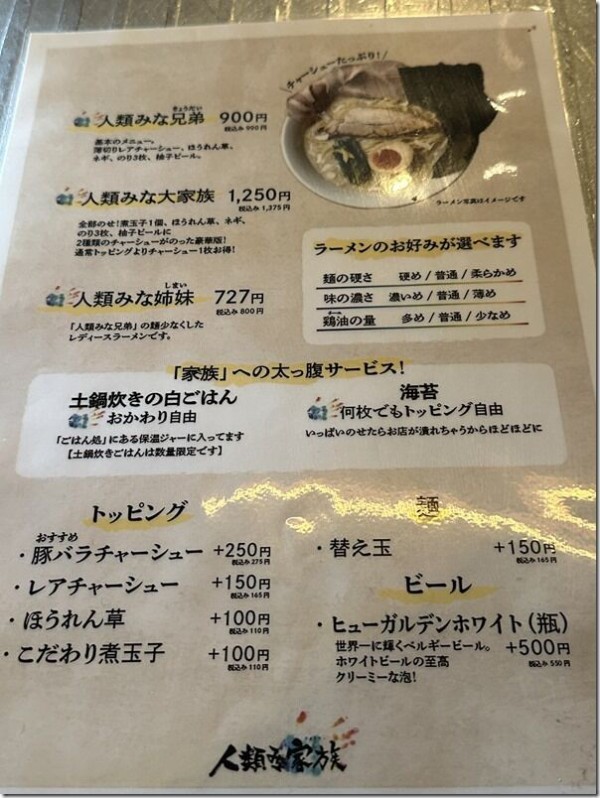 チャーシューたっぷり!
人類みな兄弟 900円
きょうだい
税込み 990円
基本のメニュー。
薄切りレアチャーシュー、ほうれん草、
ネギ、のり3枚、柚子ピール。
ラーメン写真はイメージです
人類みな大家族 1,250円
税込み 1,375円
全部のせ!煮玉子1個、ほうれん草、ネギ、
のり3枚、柚子ピールに
2種類のチャーシューがのった豪華版!
通常トッピングよりチャーシュー1枚お得!
人類みな姉妹 727円
しまい
税込み 800円
「人類みな兄弟」の麺少なくした
レディースラーメンです。
ラーメンのお好みが選べます
麺の硬さ 硬め / 普通 / 柔らかめ
味の濃さ 濃いめ / 普通 / 薄め
鶏油の量 多め / 普通 / 少なめ
チーユ
「家族」への太っ腹サービス!
土鍋炊きの白ごはん
おかわり自由
「ごはん処」にある保温ジャーに入ってます
【土鍋炊きごはんは数量限定です】
海苔
何枚でもトッピング自由
いっぱいのせたらお店が潰れちゃうからほどほどに
トッピング
おすすめ
・豚バラチャーシュー +250円
税込み 275円
・レアチャーシュー +150円
税込み 165円
・ほうれん草 +100円
税込み 110円
・こだわり煮玉子 +100円
税込み 110円
麺
・替え玉 +150円
税込み 165円
ビール
・ヒューガルデンホワイト(瓶)
+500円
税込み 550円
世界一に輝くベルギービール。
ホワイトビールの至高
クリーミーな泡!
人類みな家族